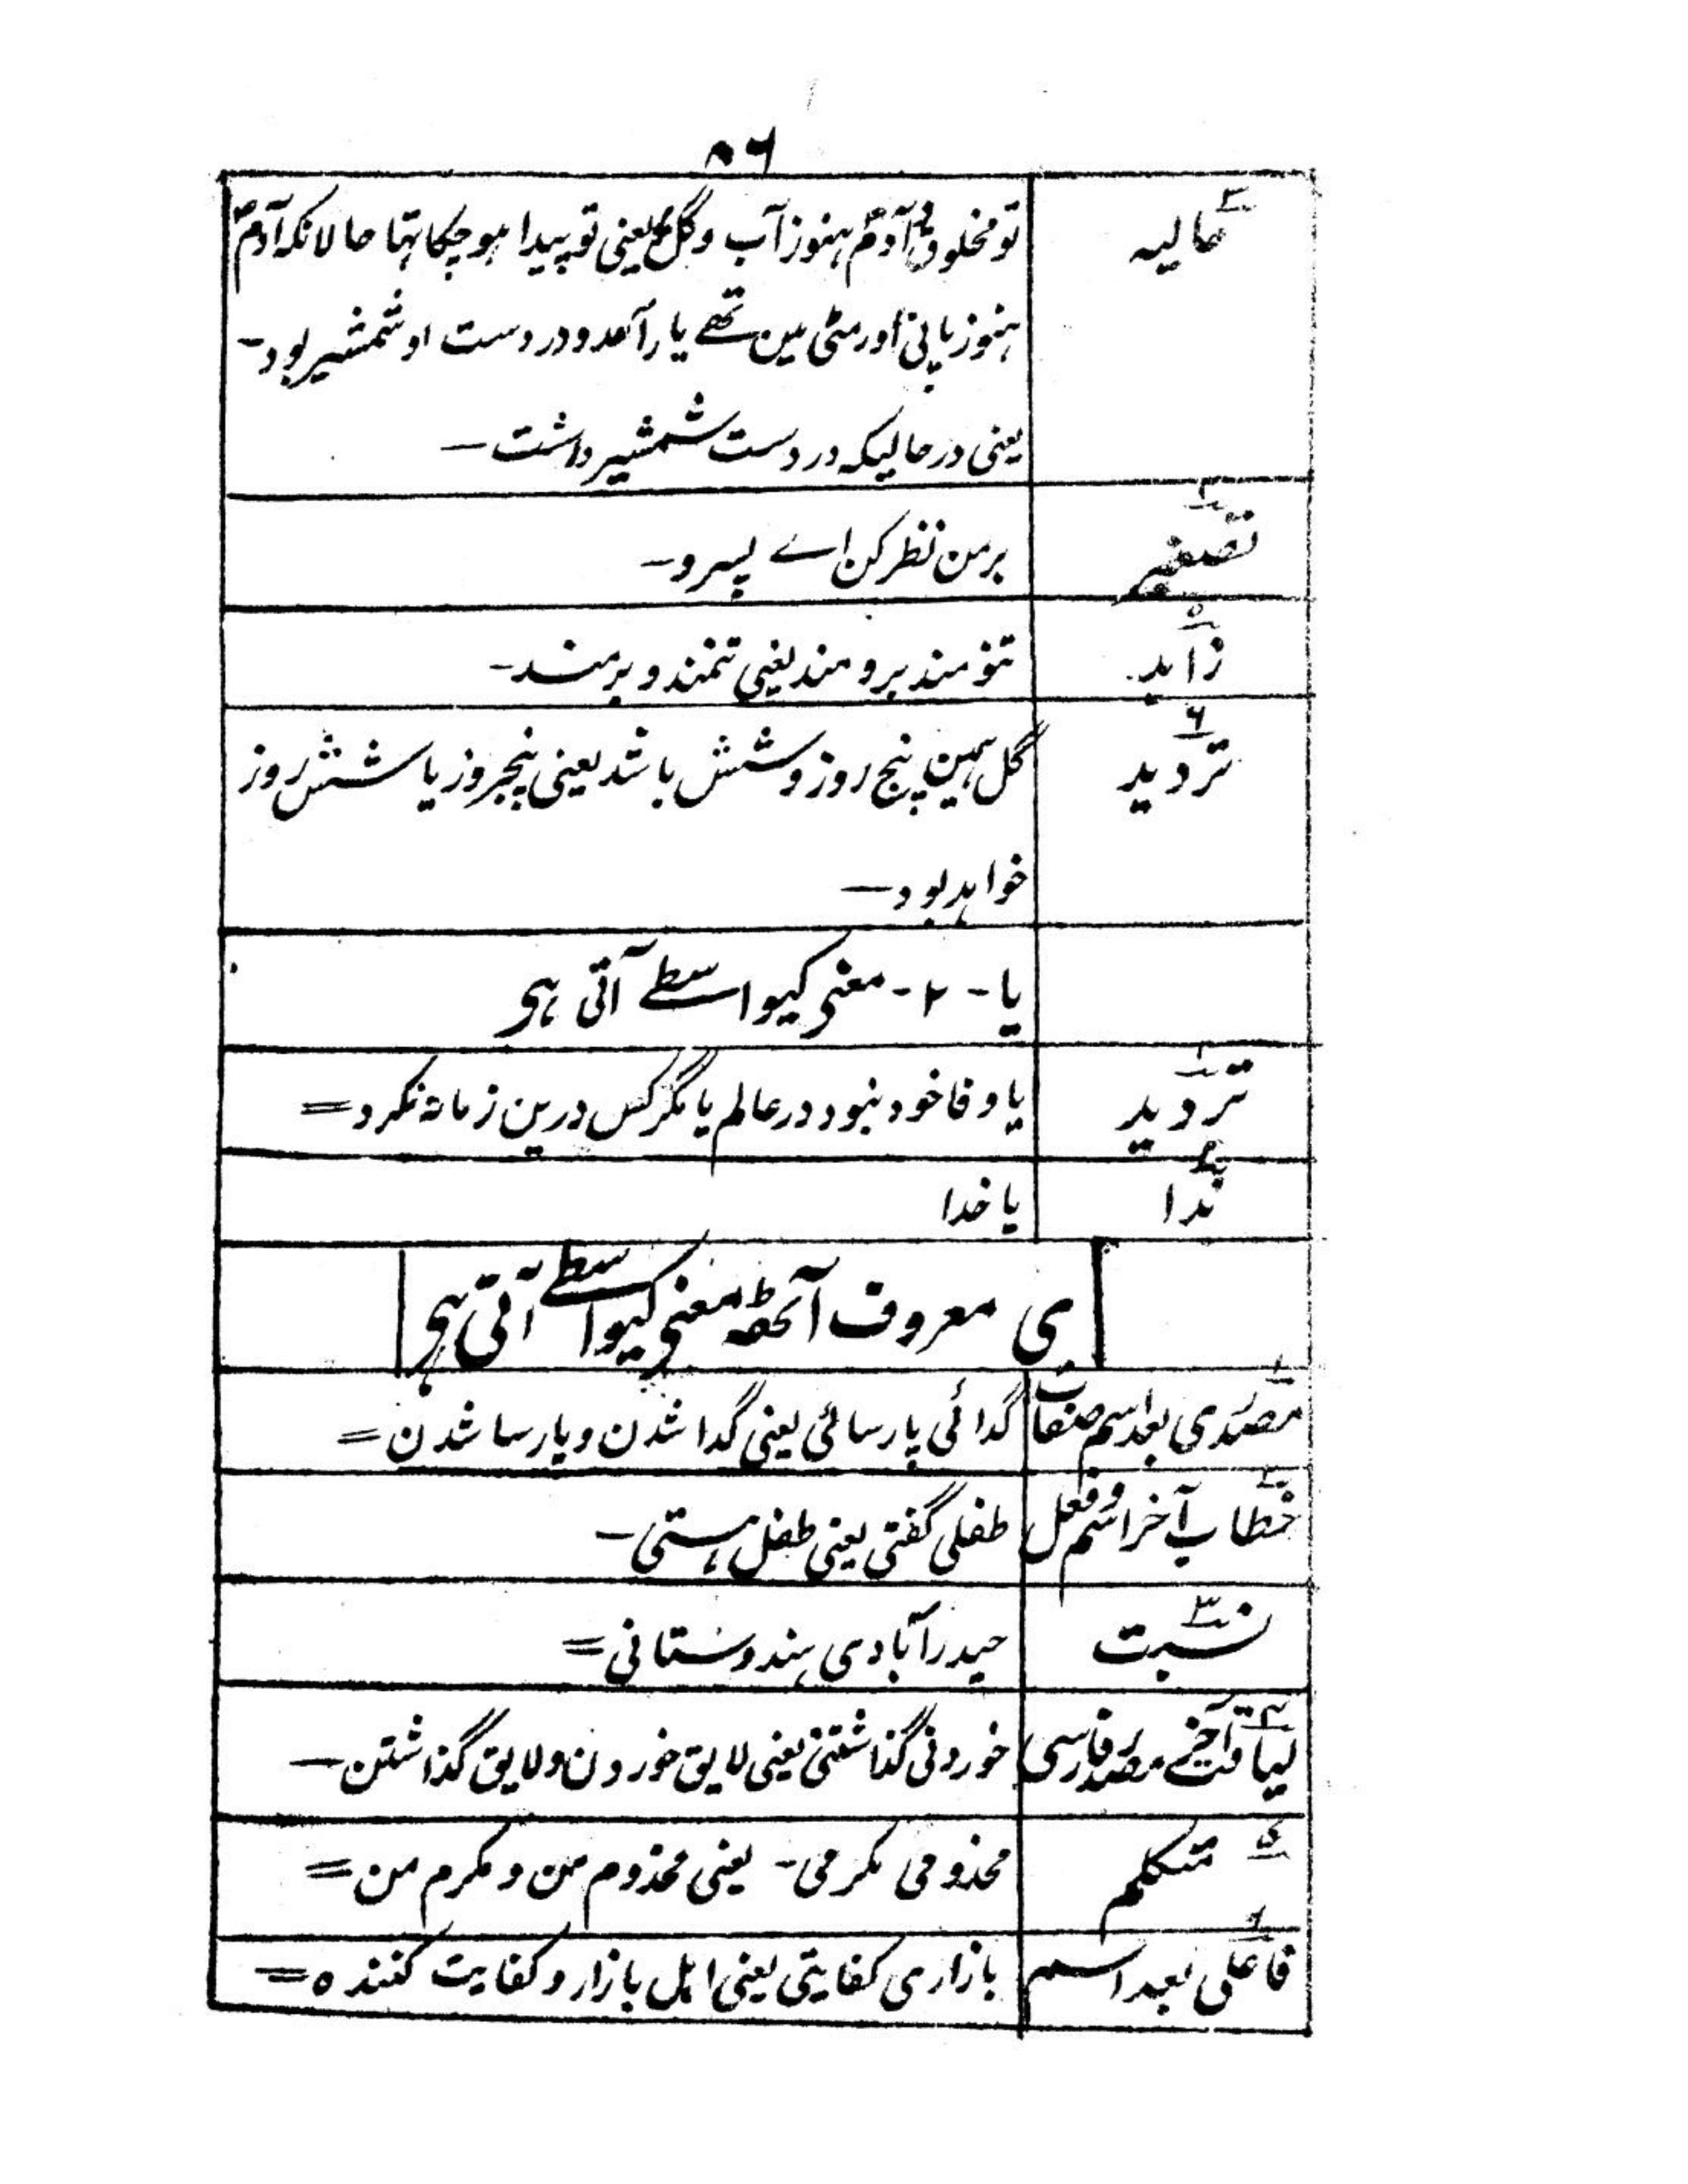 ۵۶
۳ حالیہ
تو مخلوق و آدمؑ ہنوز آب و گل یعنی تو پیدا ہو چکا تہا حالانکہ آدمؑ
ہنوز پانی اور مٹی مین تھے یار آمد و در دست او شمشیر بود-
یعنی در حالیکہ در دست شمشیر داشت—
۴ تصغیر
بر من نظر کن اے پسرو-
۵ زاید
تنومند برومند یعنی تنمند و برمند-
۶ تردید
گل ہمین پنج روز و شش باشد یعنی پنجروز یا شش روز
خواہد بود—
یا - ۲ - معنی کیواسطے آتی ہی
۱ تردید
یا وفا خود نبود در عالم یا مگر کس درین زمانہ نکرد=
۲ ندا
یا خدا
ی معروف آٹھہ معنی کیواسطے آتی ہی
۱ مصدری بعد اسم صفات
گدائی پارسائی یعنی گدا شدن و پارسا شدن=
۲ خطاب آخر اسم و فعل
طفلی گفتی یعنی طفل ہستی-
۳ نسبت
حیدرآبادی ہندوستانی=
۴ لیاقت آخر مصدر فارسی
خوردنی گذاشتنی یعنی لایق خوردن و لایق گذاشتن—
۵ متکلم
مخدومی مکرمی- یعنی مخدوم من و مکرم من=
۶ فاعلی بعد اسم
بازاری کفایتی یعنی اہل بازار و کفایت کنندہ=